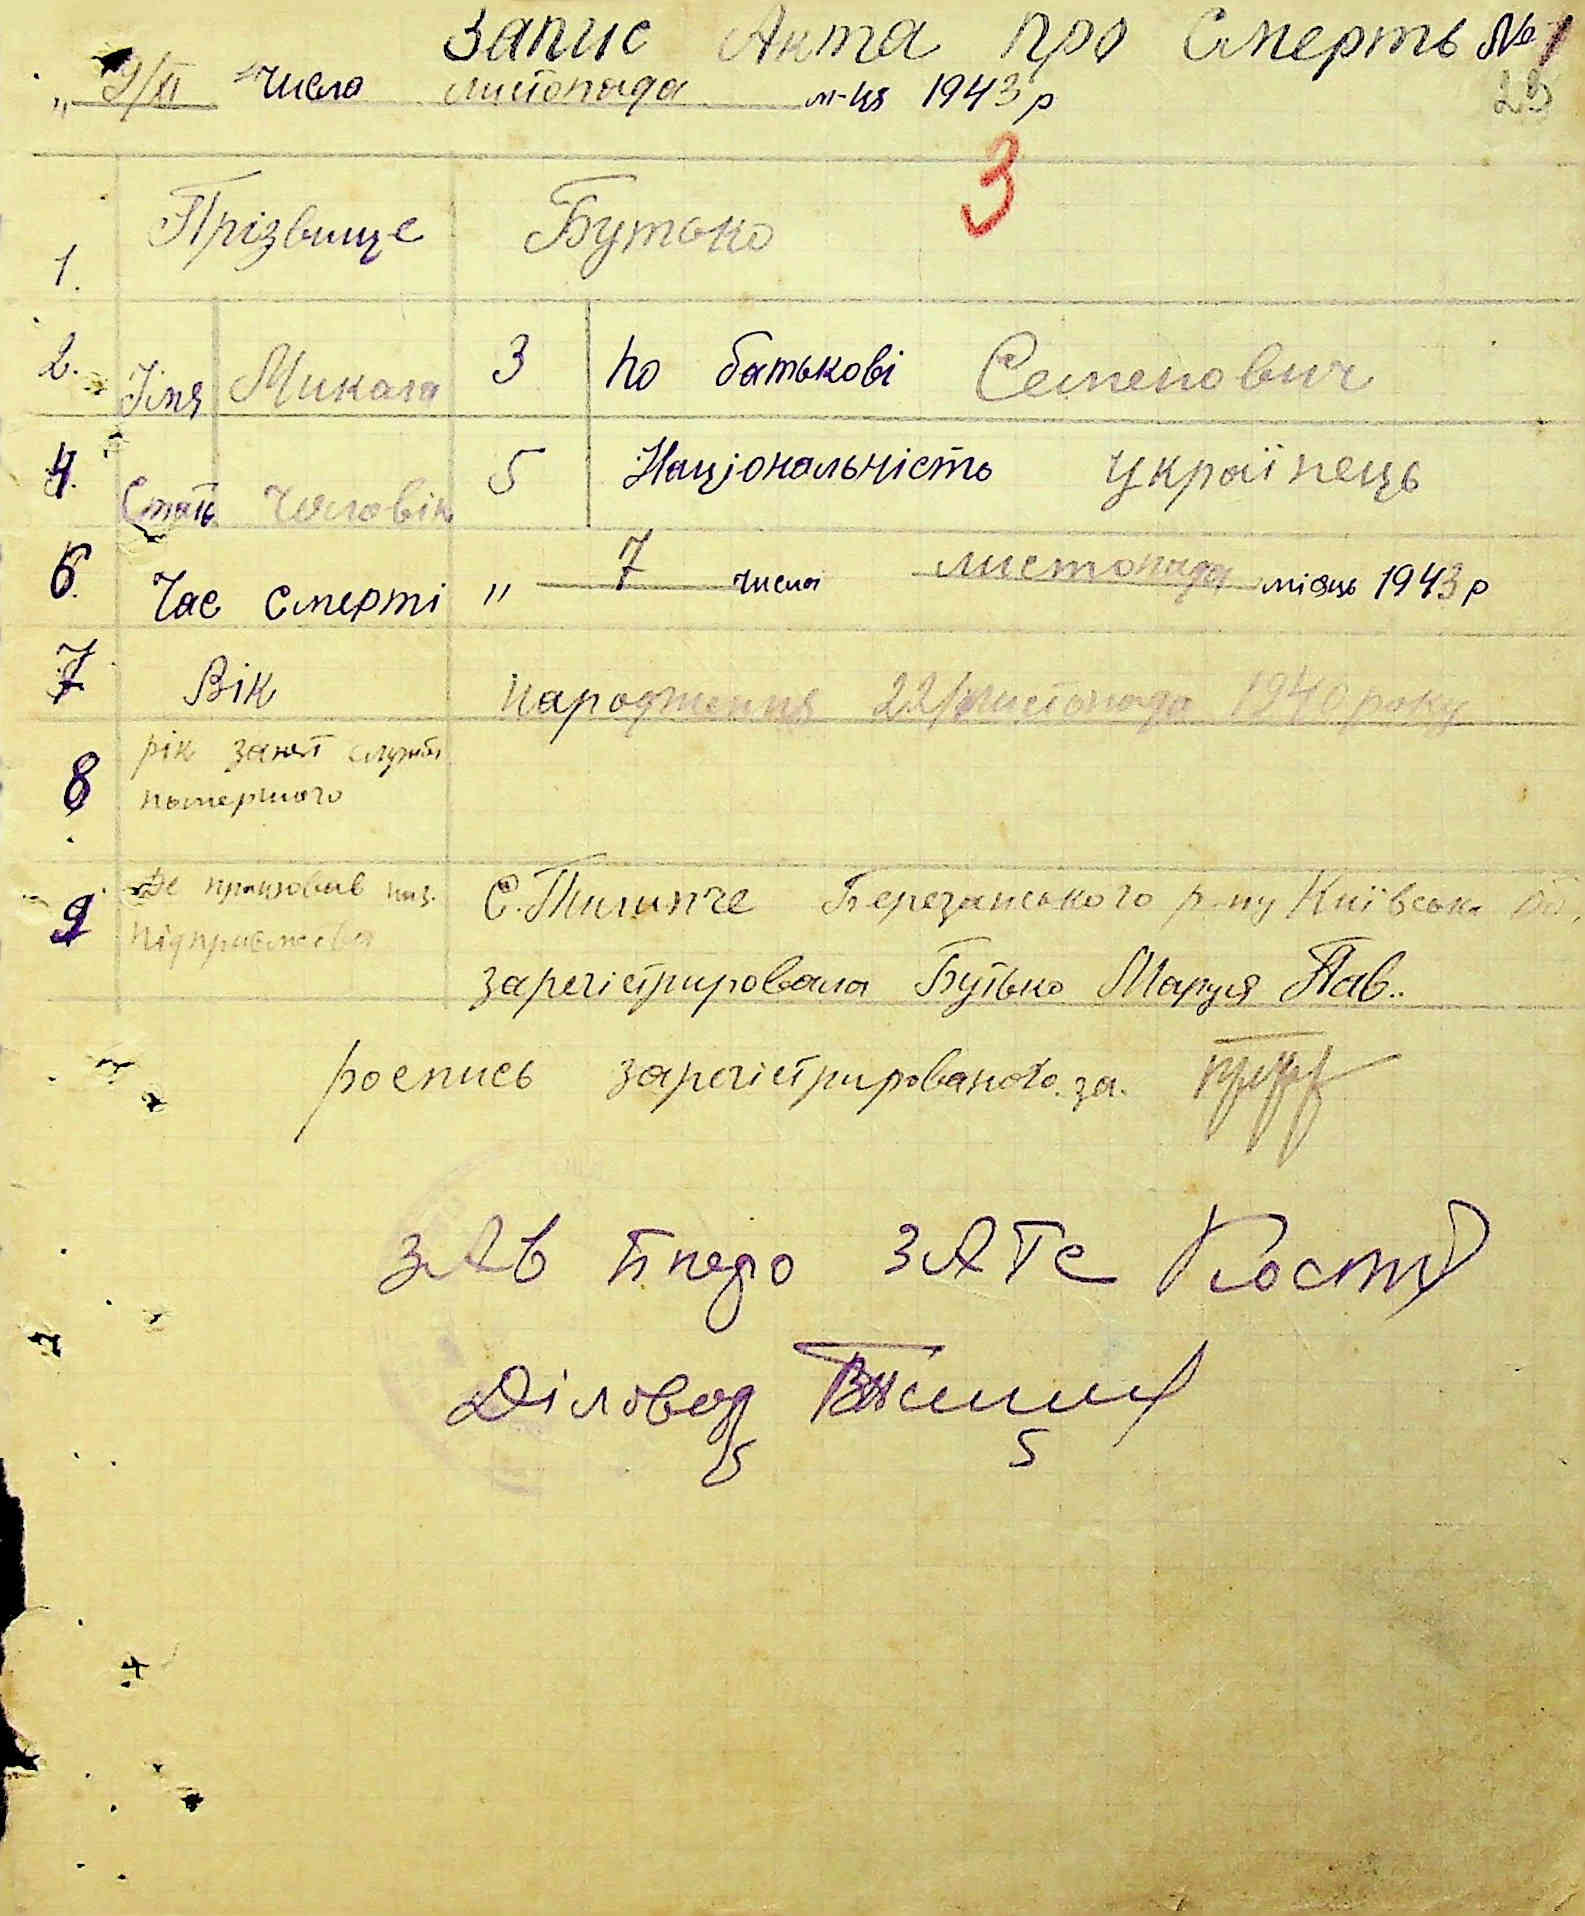 Запис Акта про Смерть № 1
" 9/XI числа листопада м-ця 1943 р
23
3
1. Прізвище Бутько
2. Імя Микола 3 по батькові Семенович
4. Стать Чоловік 5 Національність українець
6. Час смерті " 7 числа листопада місяць 1943 р
7 Вік народження 22/листопада 1940 року
8 рік занят служби
помершого
9 Де працював наз. С. Тилинче Березанського р-ну Київськ. Об.
підприємства зарегістрировала Бутько Маруся Пав..
роспись зарегістрированого за.
ЗАв бюро ЗАГС
Діловод